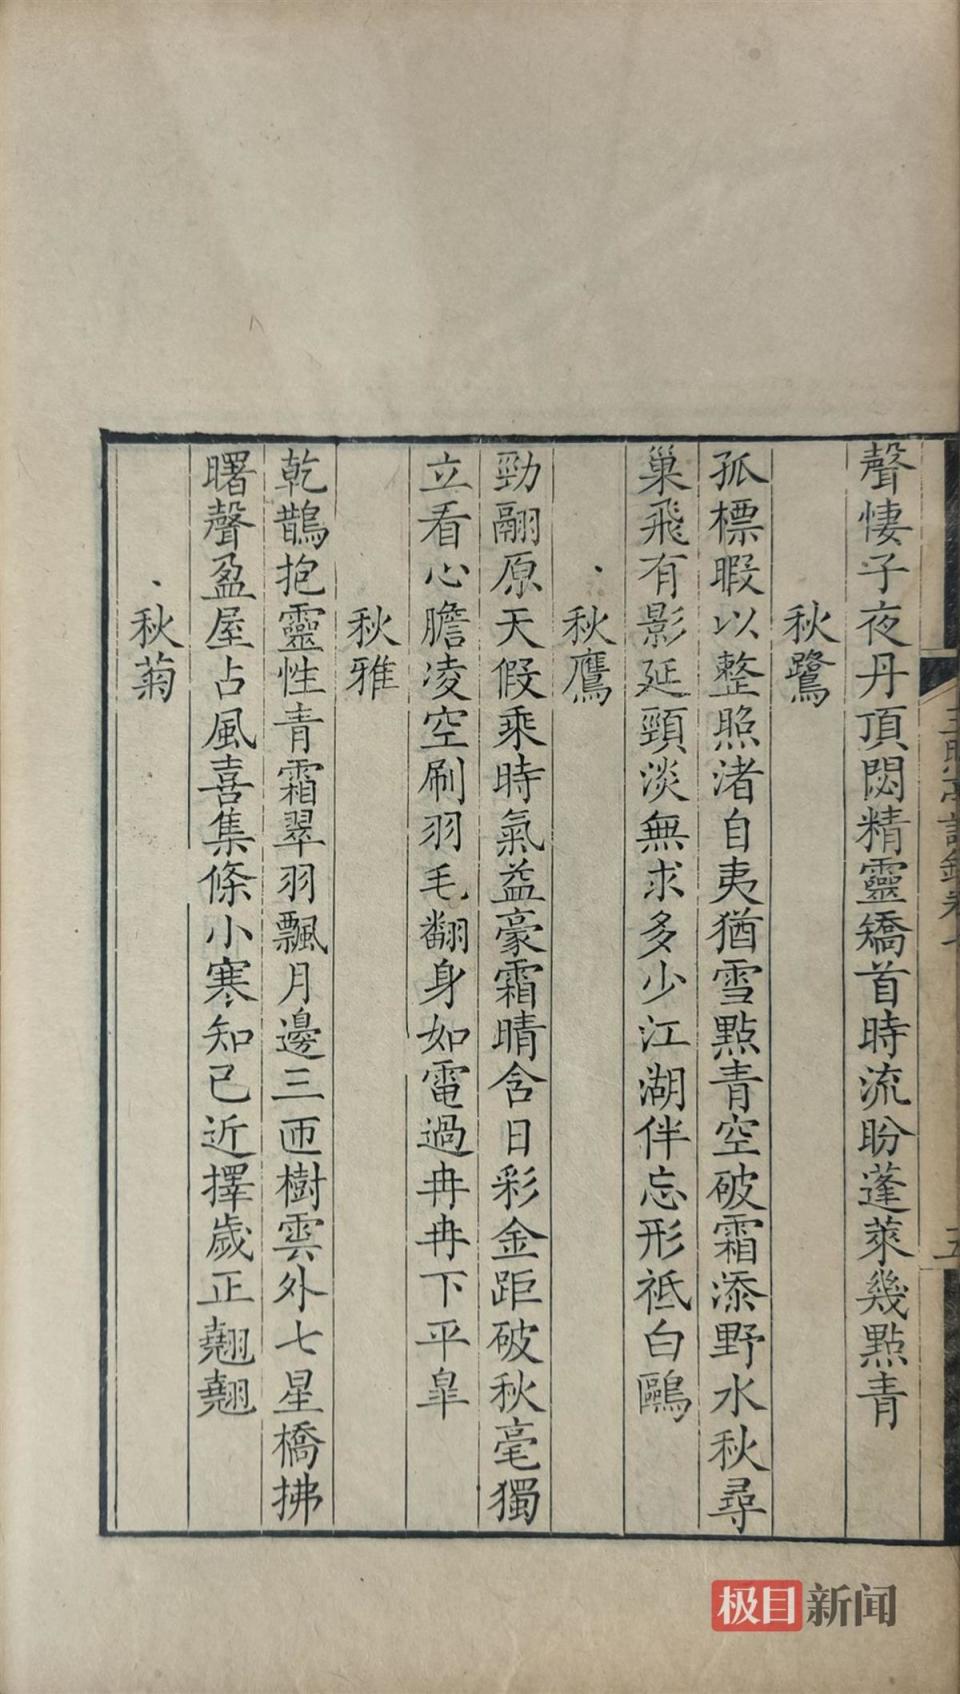 聲悽子夜丹頂閟精靈矯首時流盼蓬萊幾點青
秋鷺
孤標暇以整照渚自夷猶雪點青空破霜添野水秋尋
巢飛有影延頸淡無求多少江湖伴忘形祗白鷗
秋鷹
勁翮原天假乘時氣益豪霜晴含日彩金距破秋毫獨
立看心膽凌空刷羽毛翻身如電過冉冉下平臯
秋雅
乾鵲抱靈性青霜翠羽飄月邊三匝樹雲外七星橋拂
曙聲盈屋占風喜集條小寒知已近擇歲正翹翹
秋菊
極目新闻